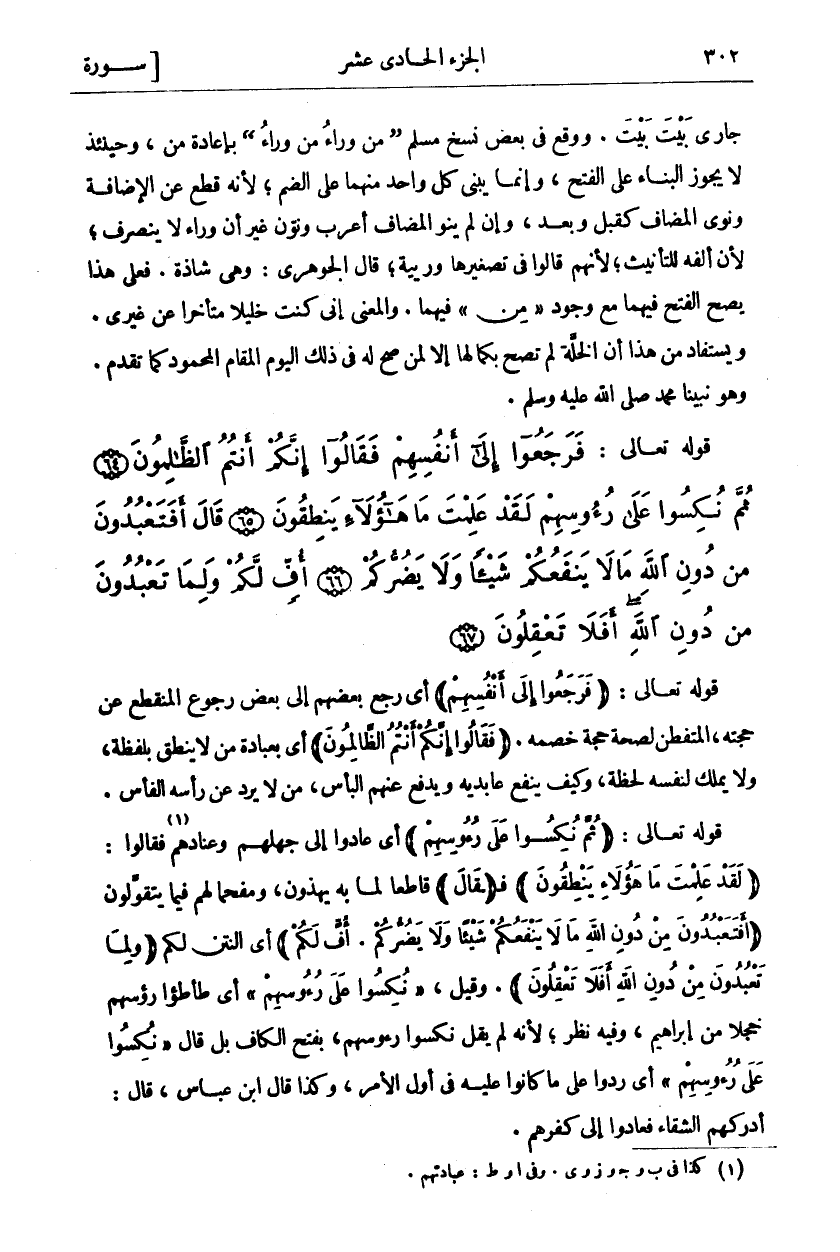 ٣٠٢ الجزء الحادى عشر [ ســورة
جارى بَيْتَ بَيْتَ . ووقع فى بعض نسخ مسلم ” من وراءُ من وراءُ “ بإعادة من ، وحينئذ
لا يجوز البنــاء على الفتح ، وإنمــا يبنى كل واحد منهما على الضم ؛ لأنه قطع عن الإضافــة
ونوى المضاف كقبل وبعــد ، وإن لم ينو المضاف أعرب ونوّن غير أن وراء لا ينصرف ؛
لأن ألفه للتأنيث؛ لأنهم قالوا فى تصغيرها وريية؛ قال الجوهرى : وهى شاذة . فعلى هذا
يصح الفتح فيهما مع وجود « مِن » فيهما . والمعنى إنى كنت خليلا متأخرا عن غيرى .
ويستفاد من هذا أن الخلَّة لم تصح بكمالها إلا لمن صح له فى ذلك اليوم المقام المحمود كما تقدم .
وهو نبينا محمد صلى الله عليه وسلم .
قوله تعـالى : فَرَجَعُوٓا إِلَىٰٓ أَنفُسِهِمْ فَقَالُوٓا إِنَّكُمْ أَنتُمُ ٱلظَّـٰلِمُونَ ﴿٦٤﴾
ثُمَّ نُكِسُوا عَلَىٰ رُءُوسِهِمْ لَقَدْ عَلِمْتَ مَا هَـٰٓؤُلَآءِ يَنطِقُونَ ﴿٦٥﴾ قَالَ أَفَتَعْبُدُونَ
مِن دُونِ ٱللَّهِ مَا لَا يَنفَعُكُمْ شَيْـًٔا وَلَا يَضُرُّكُمْ ﴿٦٦﴾ أُفٍّ لَّكُمْ وَلِمَا تَعْبُدُونَ
مِن دُونِ ٱللَّهِ ۖ أَفَلَا تَعْقِلُونَ ﴿٦٧﴾
قوله تعـالى : ﴿ فَرَجَعُوا إِلَى أَنْفُسِهِمْ﴾ أى رجع بعضهم إلى بعض رجوع المنقطع عن
حجته، المتفطن لصحة حجة خصمه . ﴿فَقَالُوا إِنَّكُمْ أَنْتُمُ الظَّالِمُونَ﴾ أى بعبادة من لا ينطق بلفظة،
ولا يملك لنفسه لحظة، وكيف ينفع عابديه ويدفع عنهم البأس، من لا يرد عن رأسه الفأس .
قوله تعـالى : ﴿ثُمَّ نُكِسُــوا عَلَى رُءُوسِهِمْ ﴾ أى عادوا إلى جهلهــم وعنادهم(١) فقالوا :
﴿ لَقَدْ عَلِمْتَ مَا هَؤُلَاءِ يَنْطِقُونَ ﴾ فـ﴿ـقَالَ﴾ قاطعا لمــا به يهذون، ومفحما لهم فيما يتقوّلون
﴿أَفَتَعْبُدُونَ مِنْ دُونِ اللهِ مَا لَا يَنْفَعُكُمْ شَيْئًا وَلَا يَضُرُّكُمْ . أُفٍّ لَكُمْ﴾ أى النتن لكم ﴿وَلِمَــا
تَعْبُدُونَ مِنْ دُونِ اللهِ أَفَلَا تَعْقِلُونَ ﴾ . وقيل ، « نُكِسُوا عَلَى رُءُوسِهِمْ » أى طأطؤا رؤسهم
خجلا من إبراهيم ، وفيه نظر ؛ لأنه لم يقل نكسوا رءوسهم، بفتح الكاف بل قال « نُكِسُوا
عَلَى رُءُوسِهِمْ » أى ردوا على ما كانوا عليــه فى أول الأمر ، وكذا قال ابن عبـاس ، قال :
أدركهم الشقاء فعادوا إلى كفرهم .
(١) كذا فى ب و جـ و ز و ى . وفى ا و ط : عبادتهم .